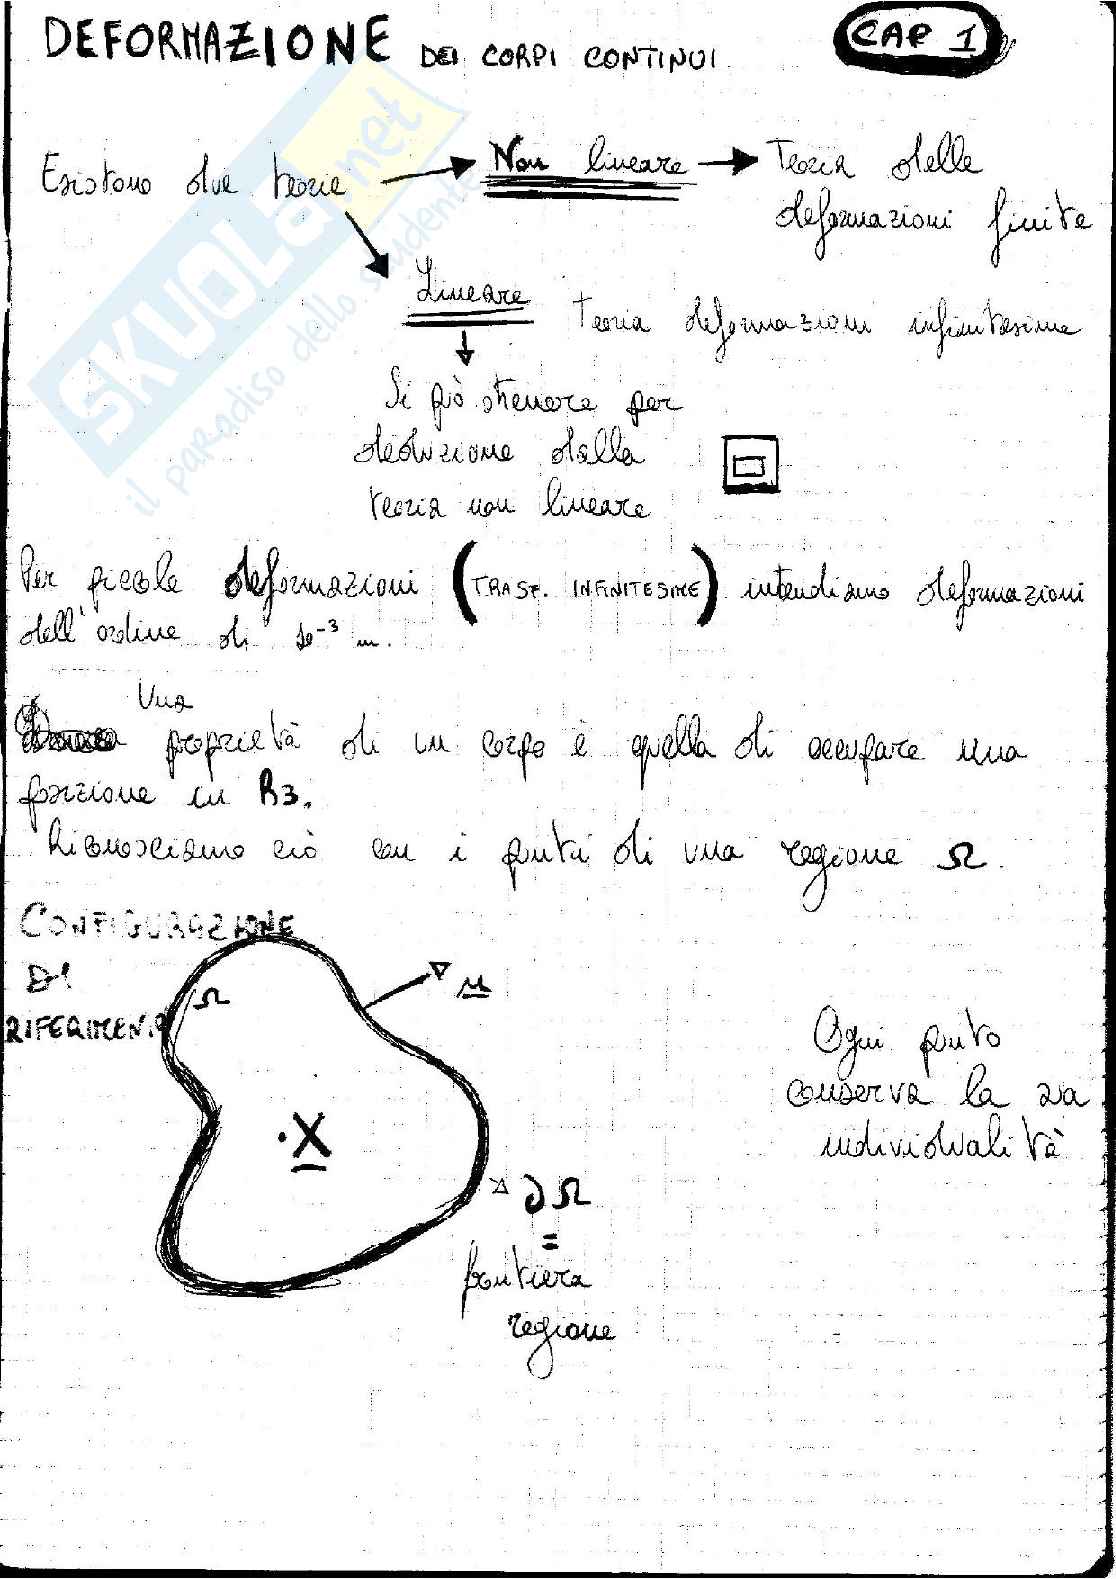 DEFORMAZIONE DEI CORPI CONTINUI
CAP 1
Esistono due teorie
Non lineare
Teoria delle
deformazioni finite
Lineare
Teoria deformazioni infinitesime
Si può ottenere per
deduzione dalla
teoria non lineare
Per piccole deformazioni (TRASF. INFINITESIME) intendiamo deformazioni
dell'ordine di 10⁻³ m.
Una
proprietà di un corpo è quella di occupare una
porzione in R3.
Riconosciamo ciò con i punti di una regione Ω.
CONFIGURAZIONE
DI
RIFERIMENTO
Ω
X
∂Ω
=
frontiera
regione
Ogni punto
conserva la sua
individualità
SKUOLA.net
il paradiso dello studente